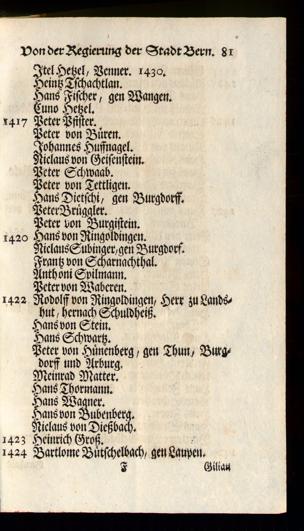 Von der Regierung der Stadt Bern. 81
Itel Hetzel, Venner. 1430.
Heintz Tschachtlan.
Hans Fischer, gen Wangen.
Cuno Hetzel.
1417 Peter Pfister.
Peter von Büren.
Johannes Huffnagel.
Niclaus von Geisenstein.
Peter Schwaab.
Peter von Tettligen.
Hans Dietschi, gen Burgdorff.
Peter Brüggler.
Peter von Burgistein.
1420 Hans von Ringoldingen.
Niclaus Subinger, gen Burgdorf.
Frantz von Scharnachthal.
Anthoni Spilmann.
Peter von Waberen.
1422 Rodolff von Ringoldingen, Herr zu Lands-
hut, hernach Schuldheiß.
Hans von Stein.
Hans Schwartz.
Peter von Hünenberg, gen Thun, Burg-
dorff und Arburg.
Meinrad Matter.
Hans Thormann.
Hans Wagner.
Hans von Bubenberg.
Niclaus von Dießbach.
1423 Heinrich Groß.
1424 Bartlome Bütschelbach, gen Laupen.
F Gilian